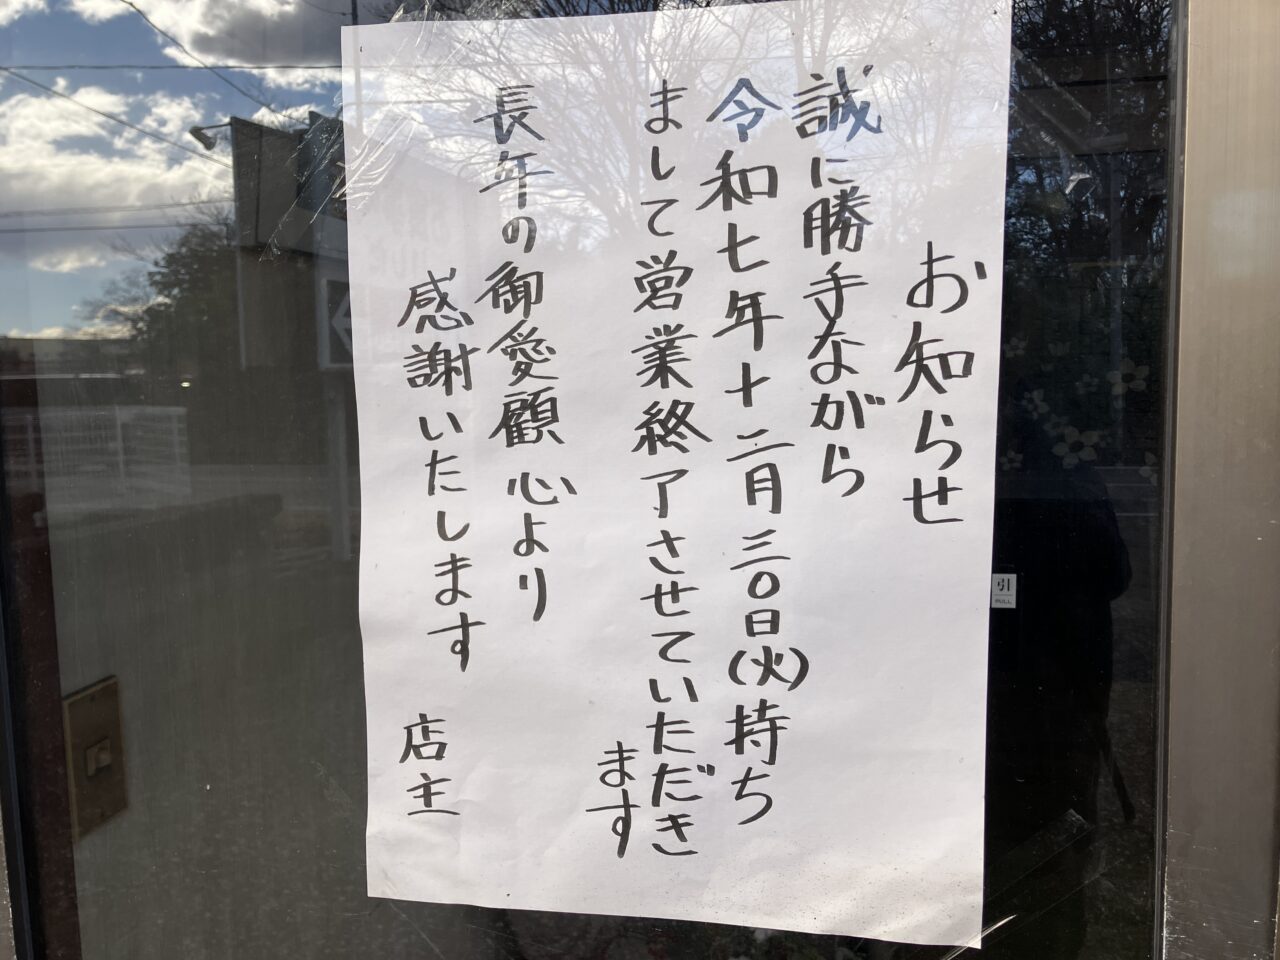 お知らせ
誠に勝手ながら
令和七年十二月三〇日(火)持ち
まして営業終了させていただき
ます
長年の御愛顧心より
感謝いたします 店主
引
PULL